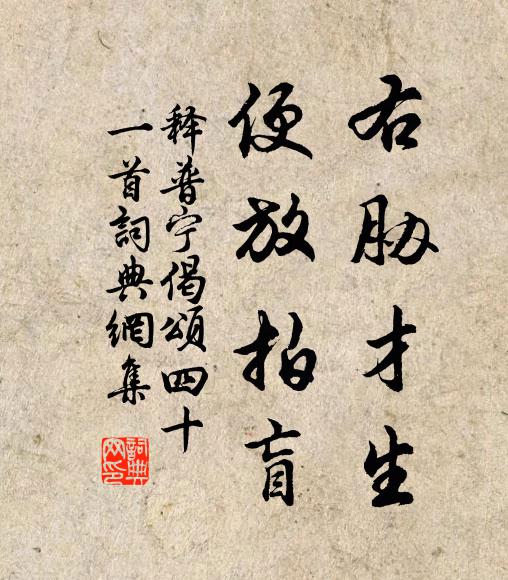 右胁才生
便放拍盲
释普宁偈颂四十
一首詞典網集
詞典
网印